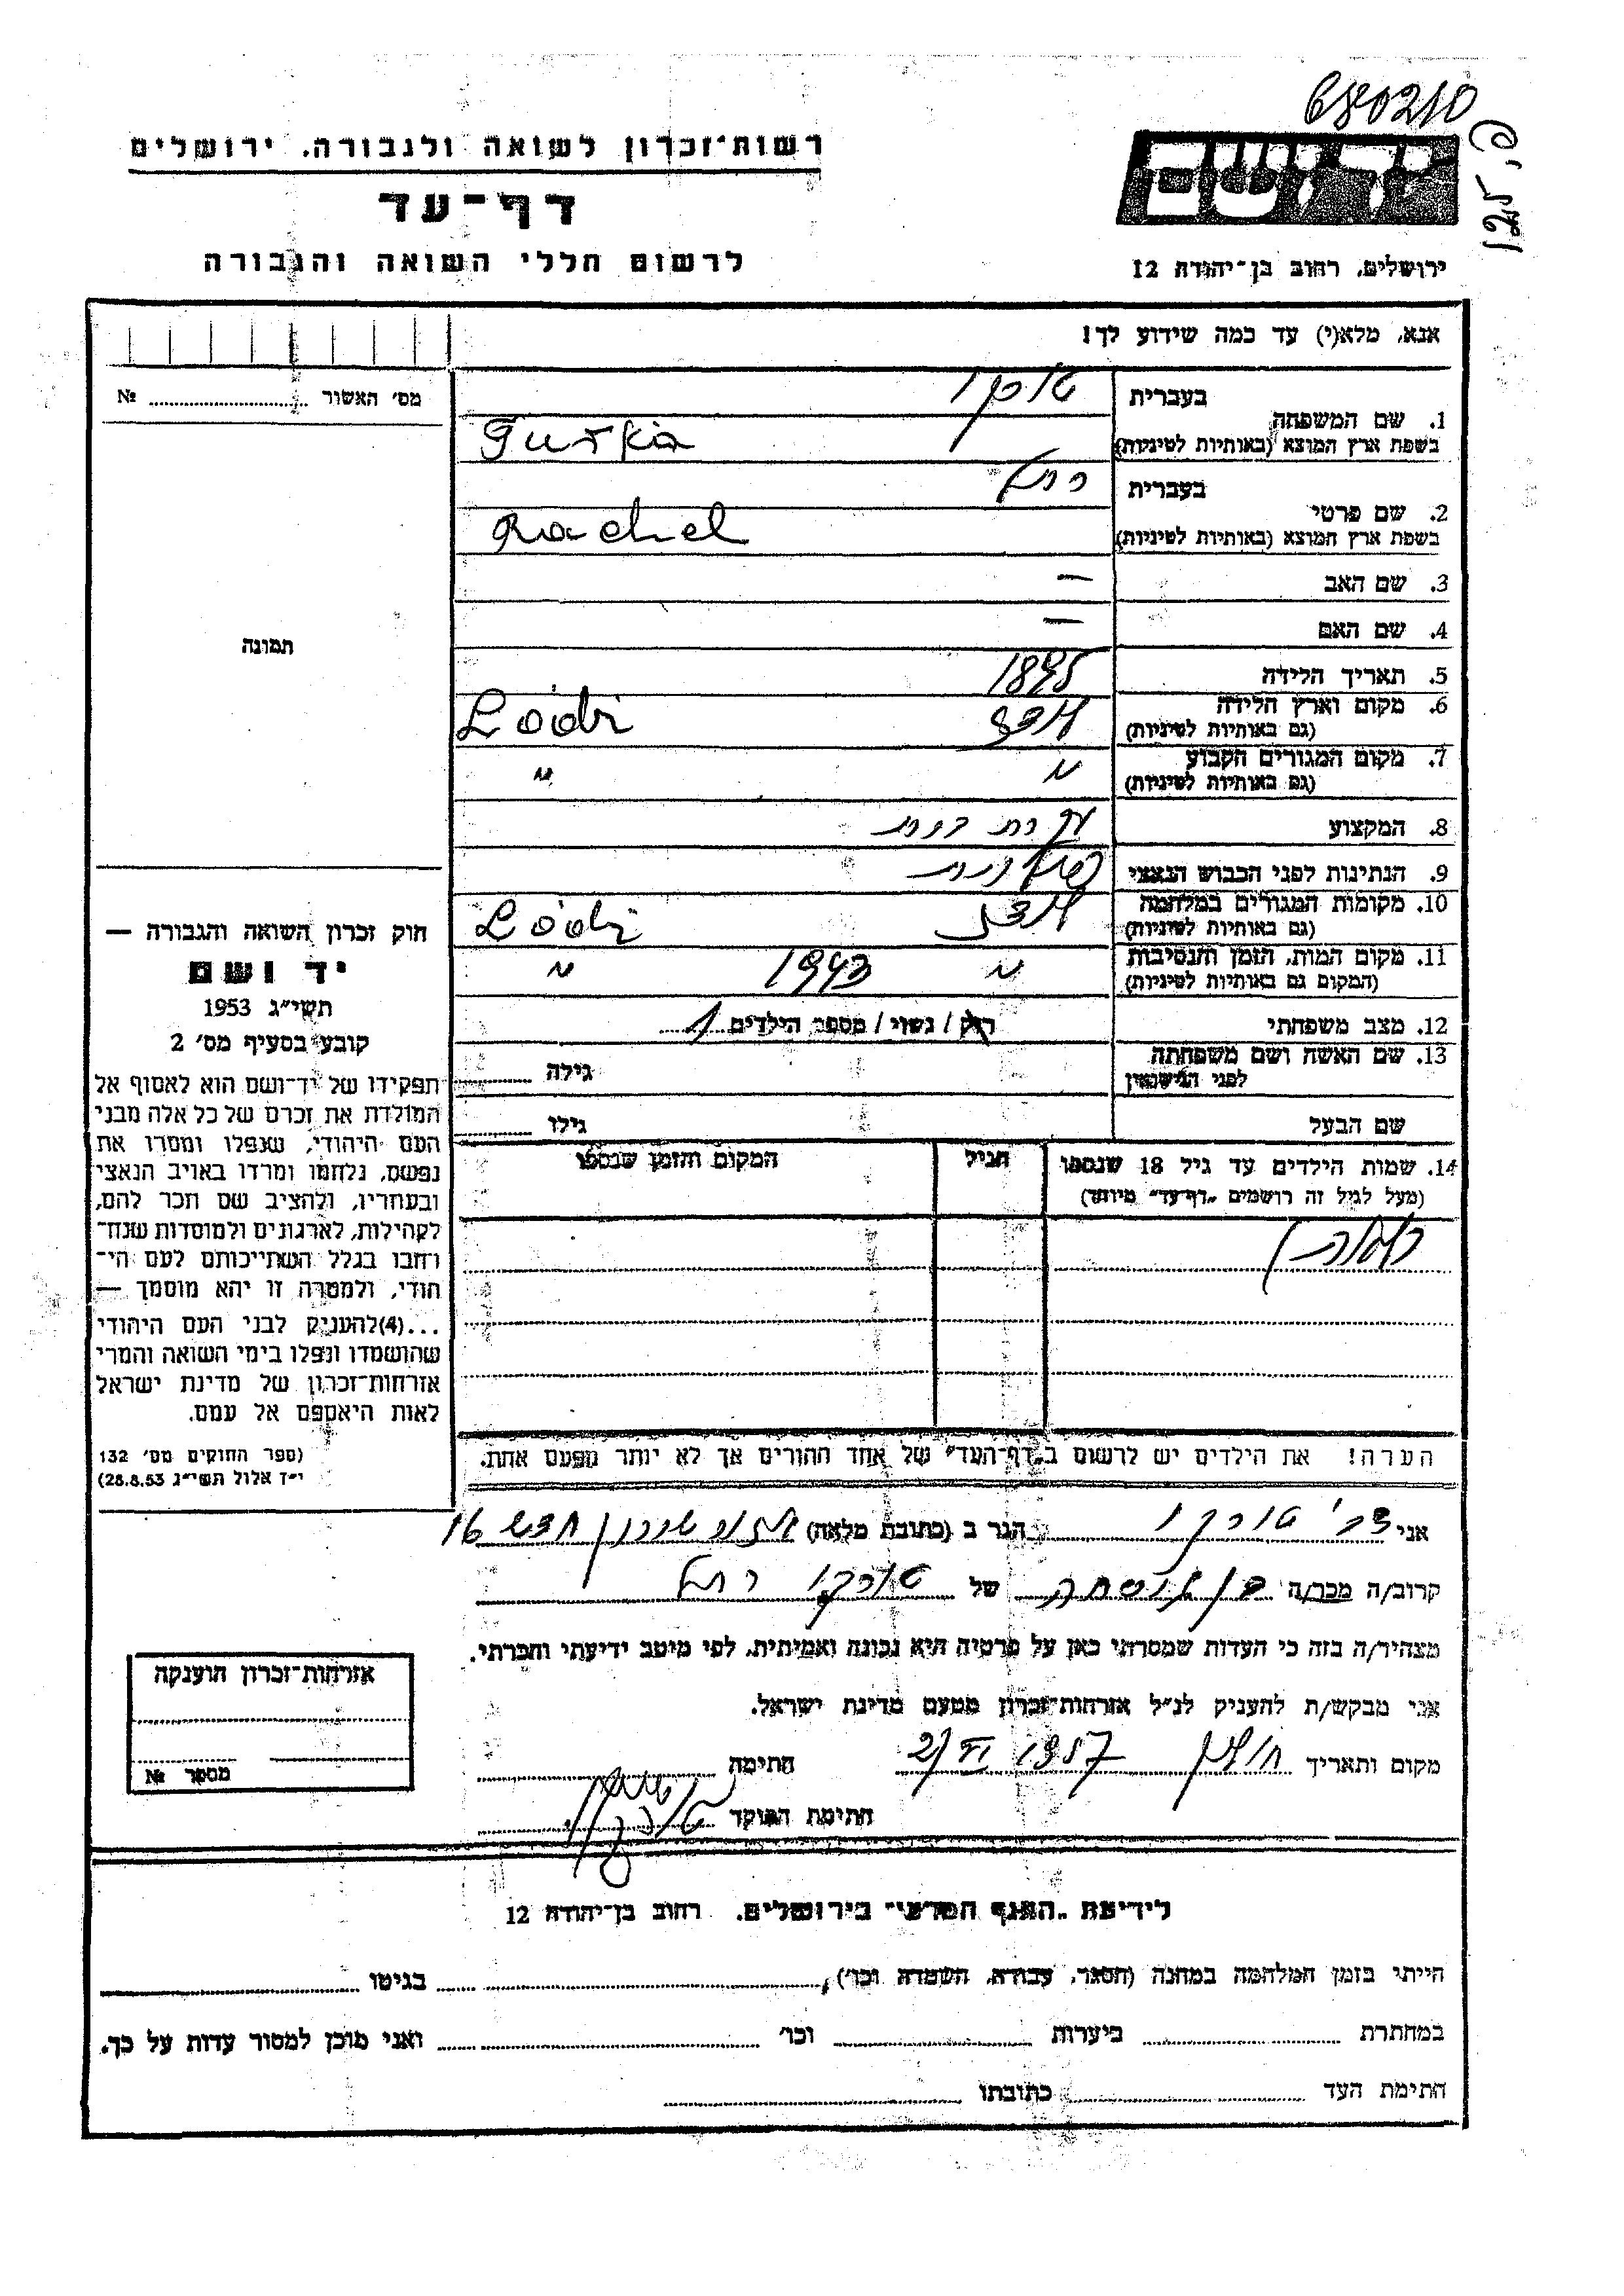 680210
125, פ
רשות־זכרון לשואה ולגבורה, ירושלים
דף־עד
לרשום חללי השואה והגבורה
יד ושם
ירושלים, רחוב בן־יהודה 12
אנא, מלא(י) עד כמה שידוע לך!
מס׳ האשור № 
בעברית
1. שם המשפחה
בשפת ארץ המוצא (באותיות לטיניות)
Turko
בעברית רחל
2. שם פרטי
בשפת ארץ המוצא (באותיות לטיניות)
Rachel
3. שם האב —
4. שם האם —
5. תאריך הלידה 1895
6. מקום וארץ הלידה לודז Lódz
(גם באותיות לטיניות)
7. מקום המגורים הקבוע " "
(גם באותיות לטיניות)
8. המקצוע עקרת בית
9. הנתינות לפני הכבוש הנאצי פולנית
10. מקומות המגורים במלחמה לודז Lódz
(גם באותיות לטיניות)
11. מקום המות, הזמן והנסיבות " 1943 "
(המקום גם באותיות לטיניות)
12. מצב משפחתי רוק / נשוי / מספר הילדים 1
13. שם האשה ושם משפחתה גילה
לפני הנישואין
שם הבעל גילו
14. שמות הילדים עד גיל 18 שנספו הגיל המקום והזמן שנספו
(מעל לגיל זה רושמים „דף־עד״ מיוחד)
הערה! את הילדים יש לרשום ב„דף־העד״ של אחד ההורים אך לא יותר מפעם אחת.
תמונה
חוק זכרון השואה והגבורה —
יד ושם
תשי״ג 1953
קובע בסעיף מס׳ 2
תפקידו של יד־ושם הוא לאסוף אל
המולדת את זכרם של כל אלה מבני
העם היהודי, שנפלו ומסרו את
נפשם, נלחמו ומרדו באויב הנאצי
ובעוזריו, ולהציב שם וזכר להם,
לקהילות, לארגונים ולמוסדות שנח־
רחבו בגלל השתייכותם לעם הי־
הודי, ולמטרה זו יהא מוסמך —
...(4)להעניק לבני העם היהודי
שהושמדו ונפלו בימי השואה והמרי
אזרחות־זכרון של מדינת ישראל
לאות היאספם אל עמם.
(ספר החוקים מס׳ 132
י״ז אלול תשי״ג 28.8.53)
אני צבי טורקו הגר ב (כתובת מלאה) 16
קרוב/ה מכר/ה של טורקו רחל
מצהיר/ה בזה כי העדות שמסרתי כאן על פרטיה היא נכונה ואמיתית, לפי מיטב ידיעתי והכרתי.
אני מבקש/ת להעניק לנ״ל אזרחות־זכרון מטעם מדינת ישראל.
מקום ותאריך חולון 2/VI 1957 חתימה
חתימת הפוקד
אזרחות־זכרון הוענקה
מספר №
לידיעת „האגף המדעי״ בירושלים, רחוב בן־יהודה 12
הייתי בזמן המלחמה במחנה (הסגר, עבודה, השמדה וכו׳), בגיטו
במחתרת ביערות וכו׳ ואני מוכן למסור עדות על כך.
חתימת העד כתובתו